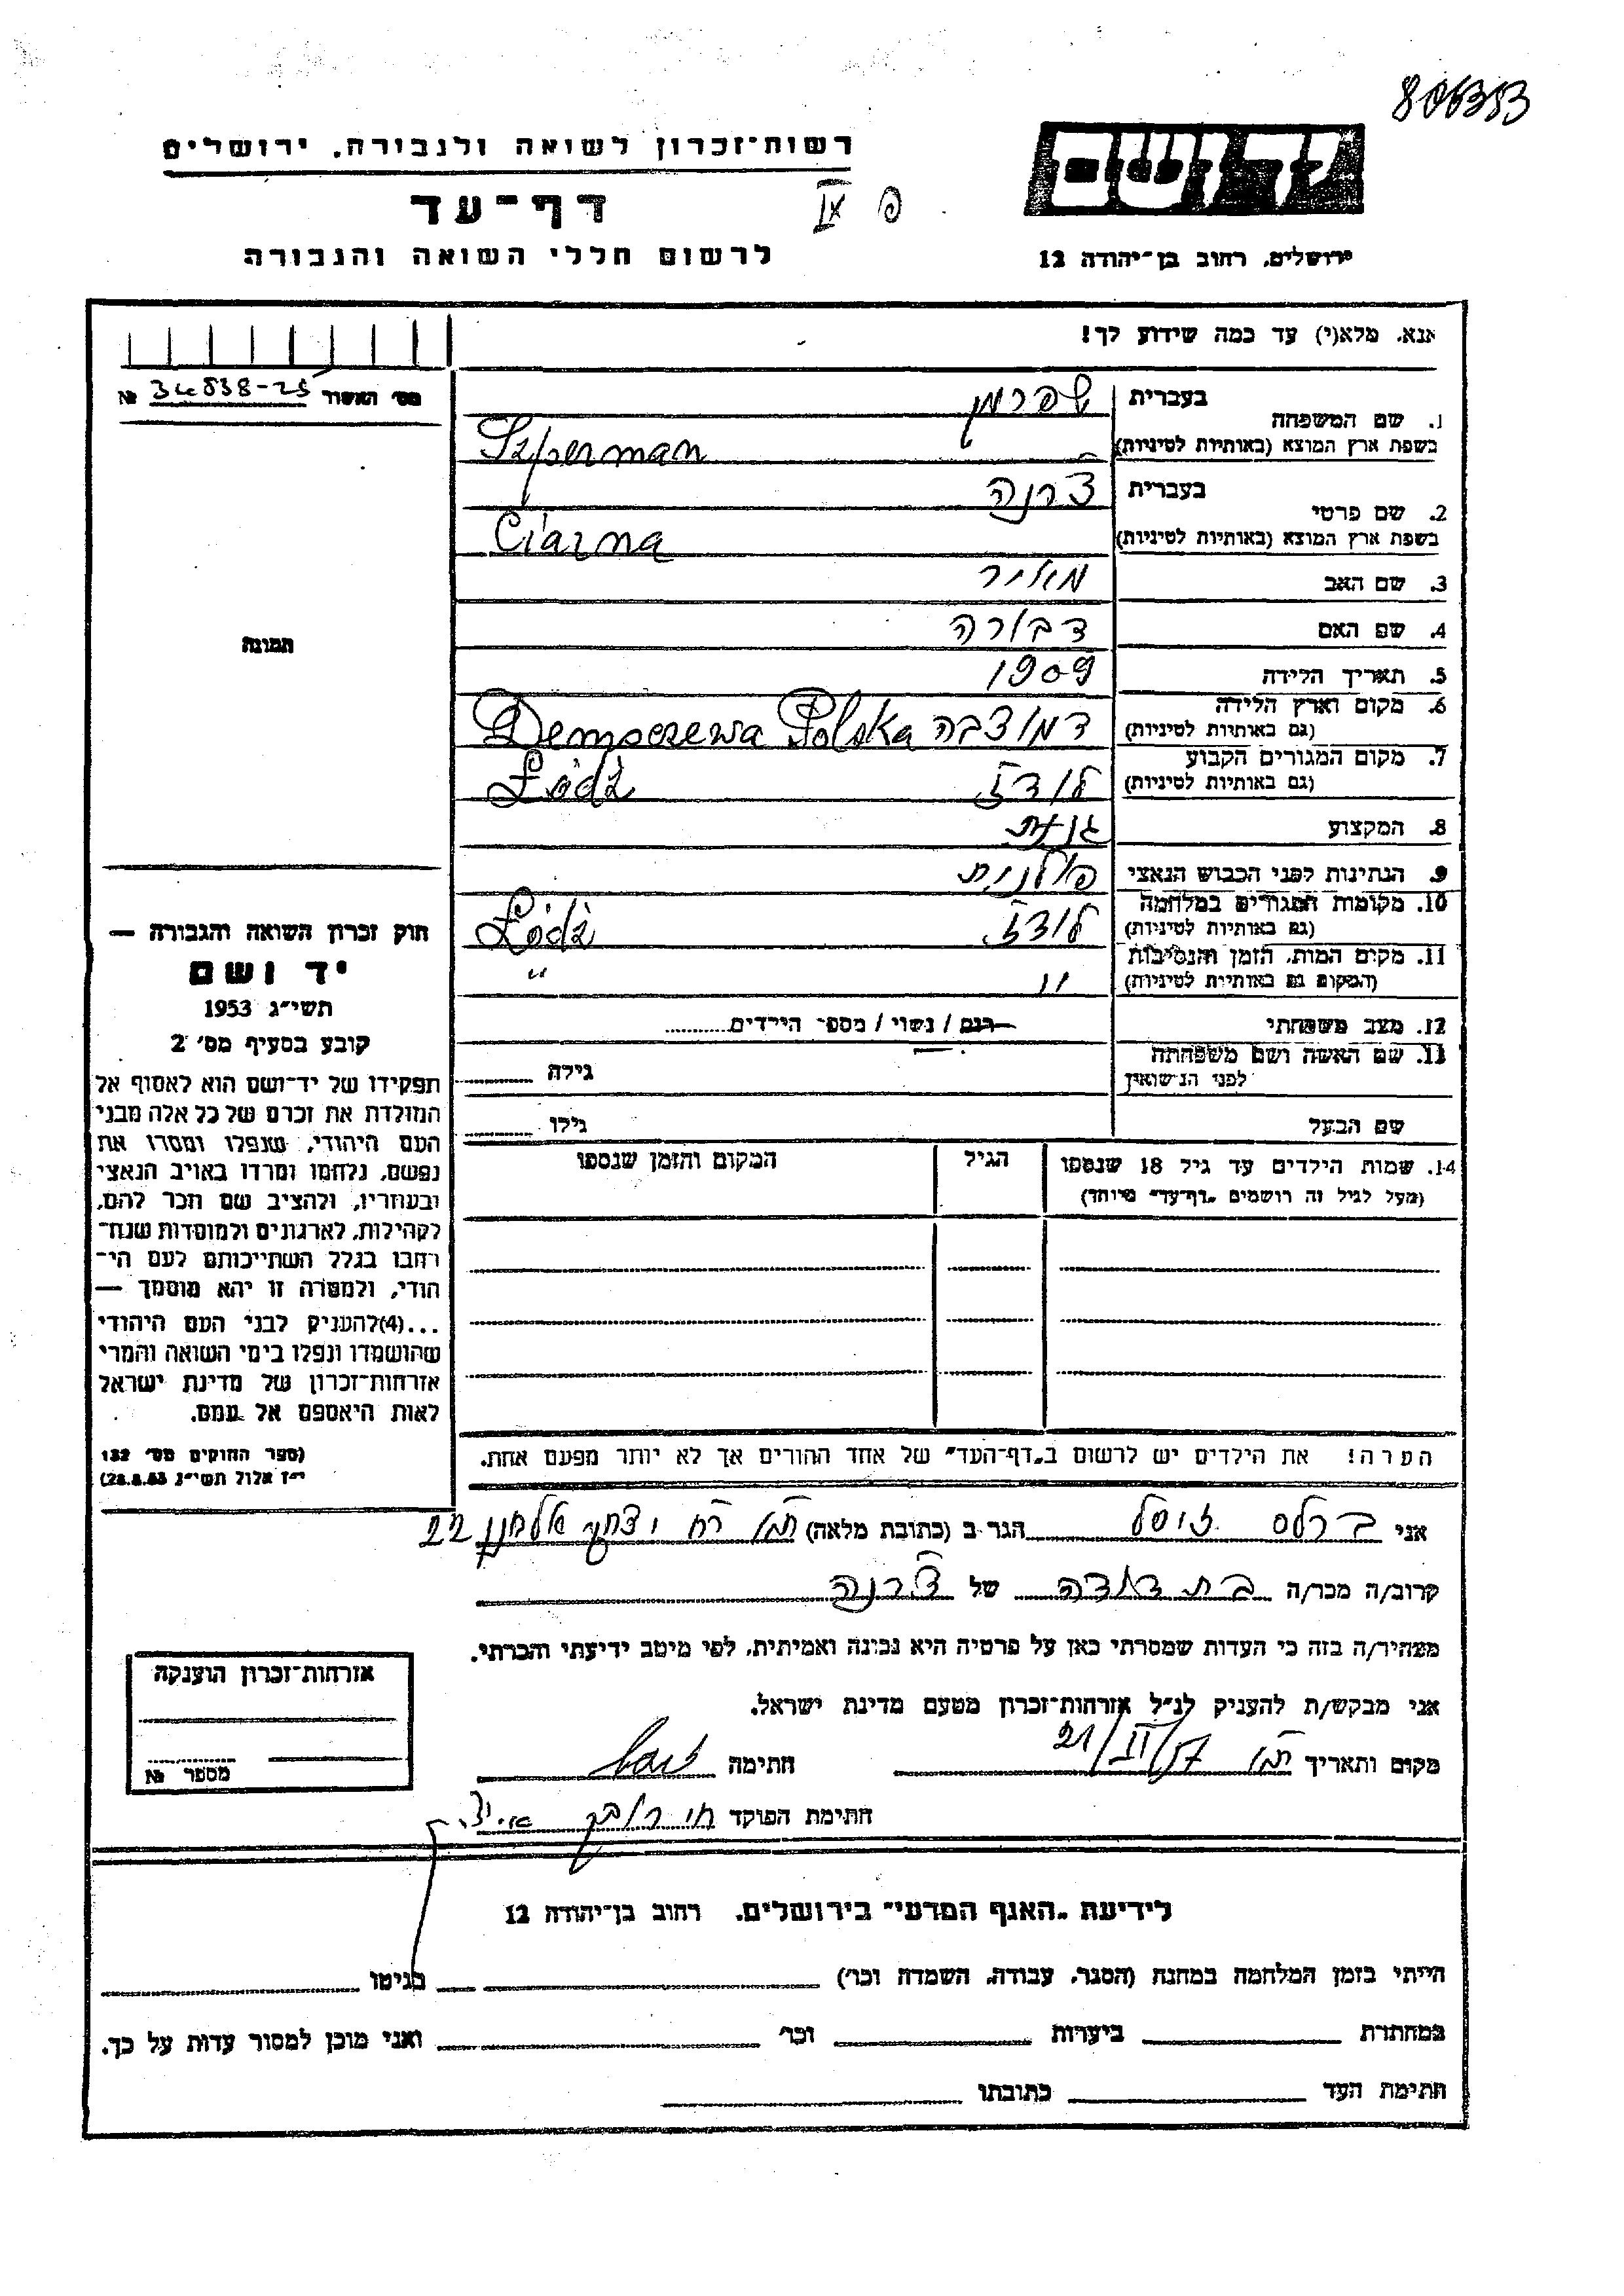 רשות־זכרון לשואה ולגבורה, ירושלים
דף־עד
לרשום חללי השואה והגבורה
ירושלים, רחוב בן־יהודה 12
אנא, מלא(י) עד כמה שידוע לך!
מס׳ האשור
№
תמונה
1. שם המשפחה
בעברית שפרמן
בשפת ארץ המוצא (באותיות לטיניות) Szperman
2. שם פרטי
בעברית צ'רנה
בשפת ארץ המוצא (באותיות לטיניות) Ciarna
3. שם האב
4. שם האם דבורה
5. תאריך הלידה 1909
6. מקום וארץ הלידה
(גם באותיות לטיניות) Polska
7. מקום המגורים הקבוע
(גם באותיות לטיניות) לודז Łódź
8. המקצוע
9. הנתינות לפני הכבוש הנאצי פולנית
10. מקומות המגורים במלחמה
(גם באותיות לטיניות) לודז Łódź
11. מקום המות, הזמן והנסיבות
(המקום גם באותיות לטיניות) " "
12. מצב משפחתי רווק / נשוי / מספר הילדים
13. שם האשה ושם משפחתה
לפני הנישואין גילה
שם הבעל גילו
14. שמות הילדים עד גיל 18 שנספו הגיל המקום והזמן שנספו
(מעל לגיל זה רושמים „דף־עד” מיוחד)
הערה! את הילדים יש לרשום ב„דף־העד” של אחד ההורים אך לא יותר מפעם אחת.
חוק זכרון השואה והגבורה —
יד ושם
תשי״ג 1953
קובע בסעיף מס׳ 2
תפקידו של יד־ושם הוא לאסוף אל
המולדת את זכרם של כל אלה מבני
העם היהודי, שנפלו ומסרו את
נפשם, נלחמו ומרדו באויב הנאצי
ובעוזריו, ולהציב שם וזכר להם,
לקהילות, לארגונים ולמוסדות שנח־
רבו בגלל השתייכותם לעם הי־
הודי, ולמטרה זו יהא מוסמך —
...(4)להעניק לבני העם היהודי
שהושמדו ונפלו בימי השואה והמרי
אזרחות־זכרון של מדינת ישראל
לאות היאספם אל עמם.
(ספר החוקים מס׳ 132
י״ז אלול תשי״ג 28.8.53)
אני הגר ב (כתובת מלאה) 22
קרוב/ה מכר/ה בת דודה של צ'רנה
מצהיר/ה בזה כי העדות שמסרתי כאן על פרטיה היא נכונה ואמיתית, לפי מיטב ידיעתי והכרתי.
אני מבקש/ת להעניק לנ״ל אזרחות־זכרון מטעם מדינת ישראל.
מקום ותאריך 21/II/57 חתימה
חתימת הפוקד
אזרחות־זכרון הוענקה
מספר №
לידיעת „האגף המדעי” בירושלים, רחוב בן־יהודה 12
הייתי בזמן המלחמה במחנה (הסגר, עבודה, השמדה וכו׳) בגיטו
במחתרת ביערות וכו׳ ואני מוכן למסור עדות על כך.
חתימת העד כתובתו